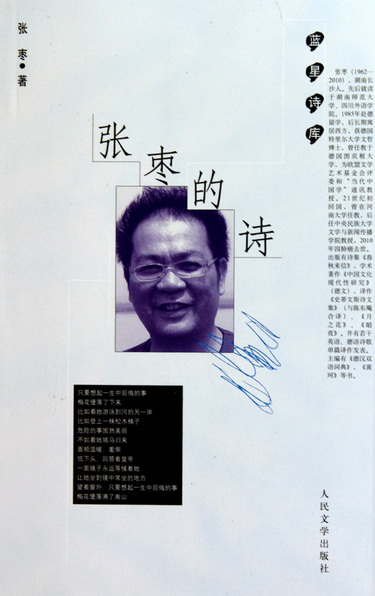 张 枣●著
蓝星诗库
张枣的诗
张枣(1962—
2010),湖南长
沙人,先后就读
于湖南师范大
学、四川外语学
院,1985年赴德
留学,后长期寓
居西方,获德国
特里尔大学文哲
博士,曾任教于
德国图宾根大
学,为欧盟文学
艺术基金会评
委和“当代中
国学”通讯教
授。21世纪初
回国,曾在河
南大学任教,后
任中央民族大学
文学与新闻传播
学院教授,2010
年因肺癌去世。
出版有诗集《春
秋来信》,学术
著作《中国文化
现代性研究》
(德文),译作
《史蒂文斯诗文
集》(与陈东飚
合译)、《月
之花》、《暗
夜》,并有若干
英语、德语诗歌
单篇译作发表。
主编有《德汉双
语词典》、《黄
珂》等书。
只要想起一生中后悔的事
梅花便落了下来
比如看她游泳到河的另一岸
比如登上一株松木梯子
危险的事固然美丽
不如看她骑马归来
面颊温暖 羞惭
低下头 回答着皇帝
一面镜子永远等候着她
让她坐到镜中常坐的地方
望着窗外 只要想起一生中后悔的事
梅花便落满了南山
人民文学出版社